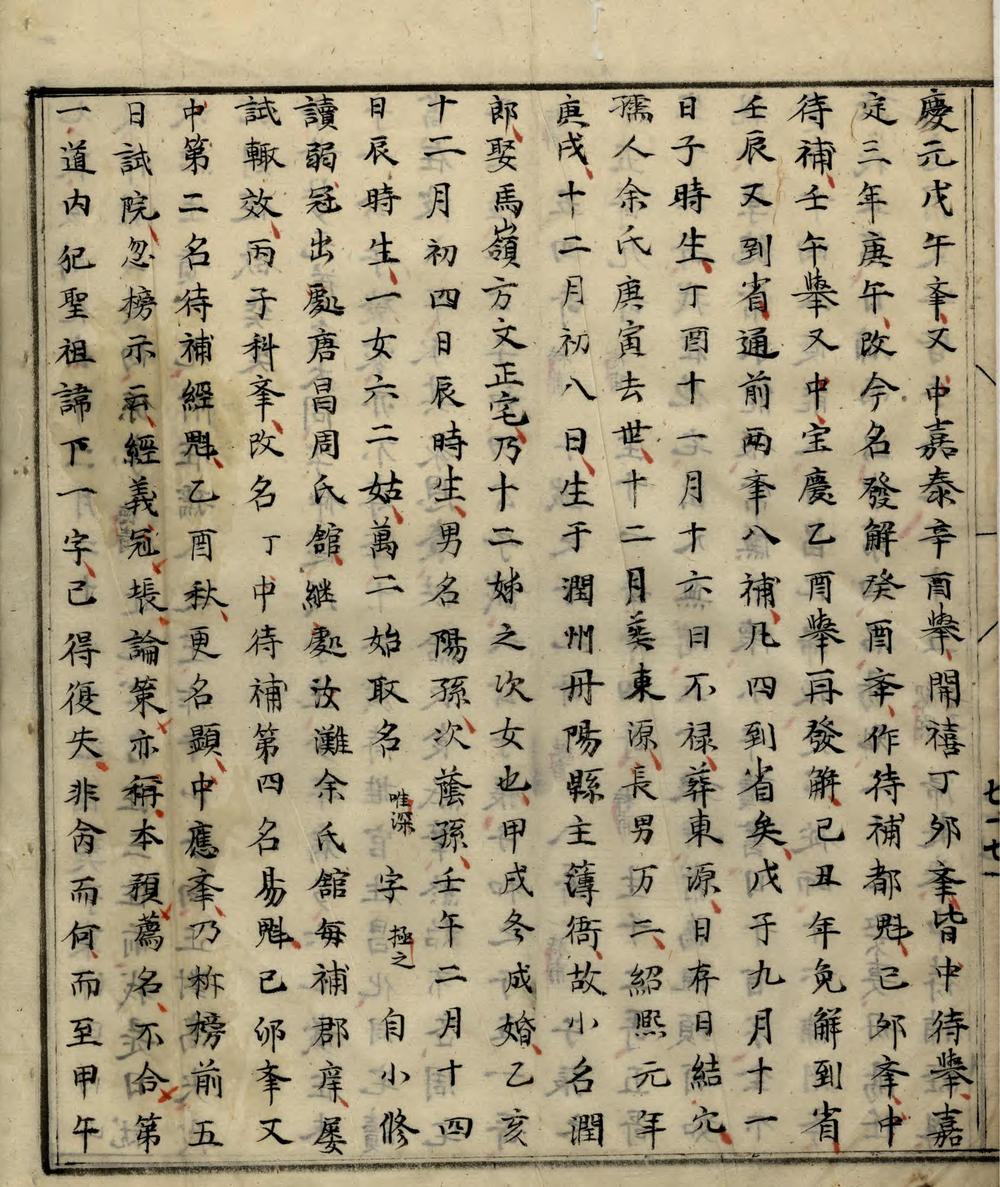 慶元戊午夆又中嘉泰辛酉舉開禧丁夘夆皆中待舉嘉
定三年庚午改今名發解癸酉夆作待補都魁己夘夆中
待補壬午舉又中宝慶乙酉舉再發解己丑年免解到省
壬辰又到省通前兩夆八補凡四到省矣戊子九月十一
日子時生丁酉十一月十六日不禄葬東源日存日結穴
孺人余氏庚寅去世十二月葬東源長男万三紹熙元年
庚戌十二月初八日生于潤州丹陽縣主簿衙故小名潤
郎娶馬嶺方文正宅乃十二姊之次女也甲戌冬成婚乙亥
十二月初四日辰時生男名陽孫次蔭孫壬午二月十四
日辰時生一女六二姑萬二始取名唯深字極之自小修
讀弱冠出處唐昌周氏館継處汝灘余氏舘每補郡庠屡
試輙效丙子科夆改名丁中待補第四名易魁已夘夆又
中第二名待補經魁乙酉秋更名顕中應夆乃柝榜前五
日試院忽榜示云經義冠塲論策亦稱本預薦名不合第
一道内犯聖祖諱下一字已得復失非命而何而至甲午
七一七一